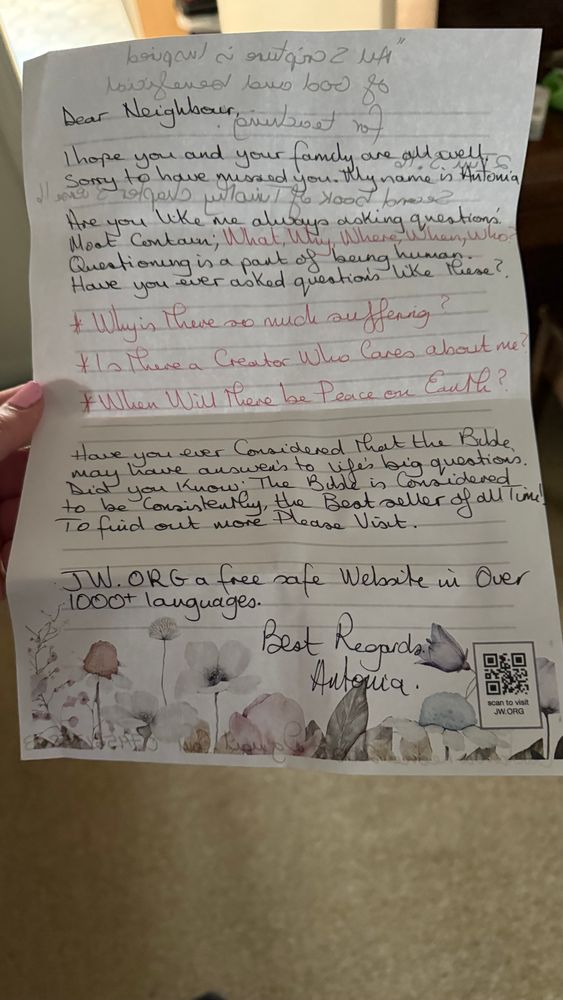 "All Scripture is Inspired
of God and beneficial
for teaching.
Dear Neighbour,
I hope you and your family are all well.
Sorry to have missed you. My name is Antonia
Second book of Timothy Chapter 3 verse 16
Are you like me always asking questions.
Most Contain; What, Why, Where, When, Who?
Questioning is a part of being human.
Have you ever asked questions like these?.
* Why is there so much suffering?
* Is there a Creator Who Cares about me?
* When Will there be Peace on Earth?
Have you ever Considered that the Bible
may have answers to life's big questions.
Did you Know: The Bible is Considered
to be Consistently, the Best seller of all Time!
To find out more Please Visit.
JW.ORG a free safe Website in Over
1000+ languages.
Best Regards.
Antonia.
scan to visit
JW.ORG